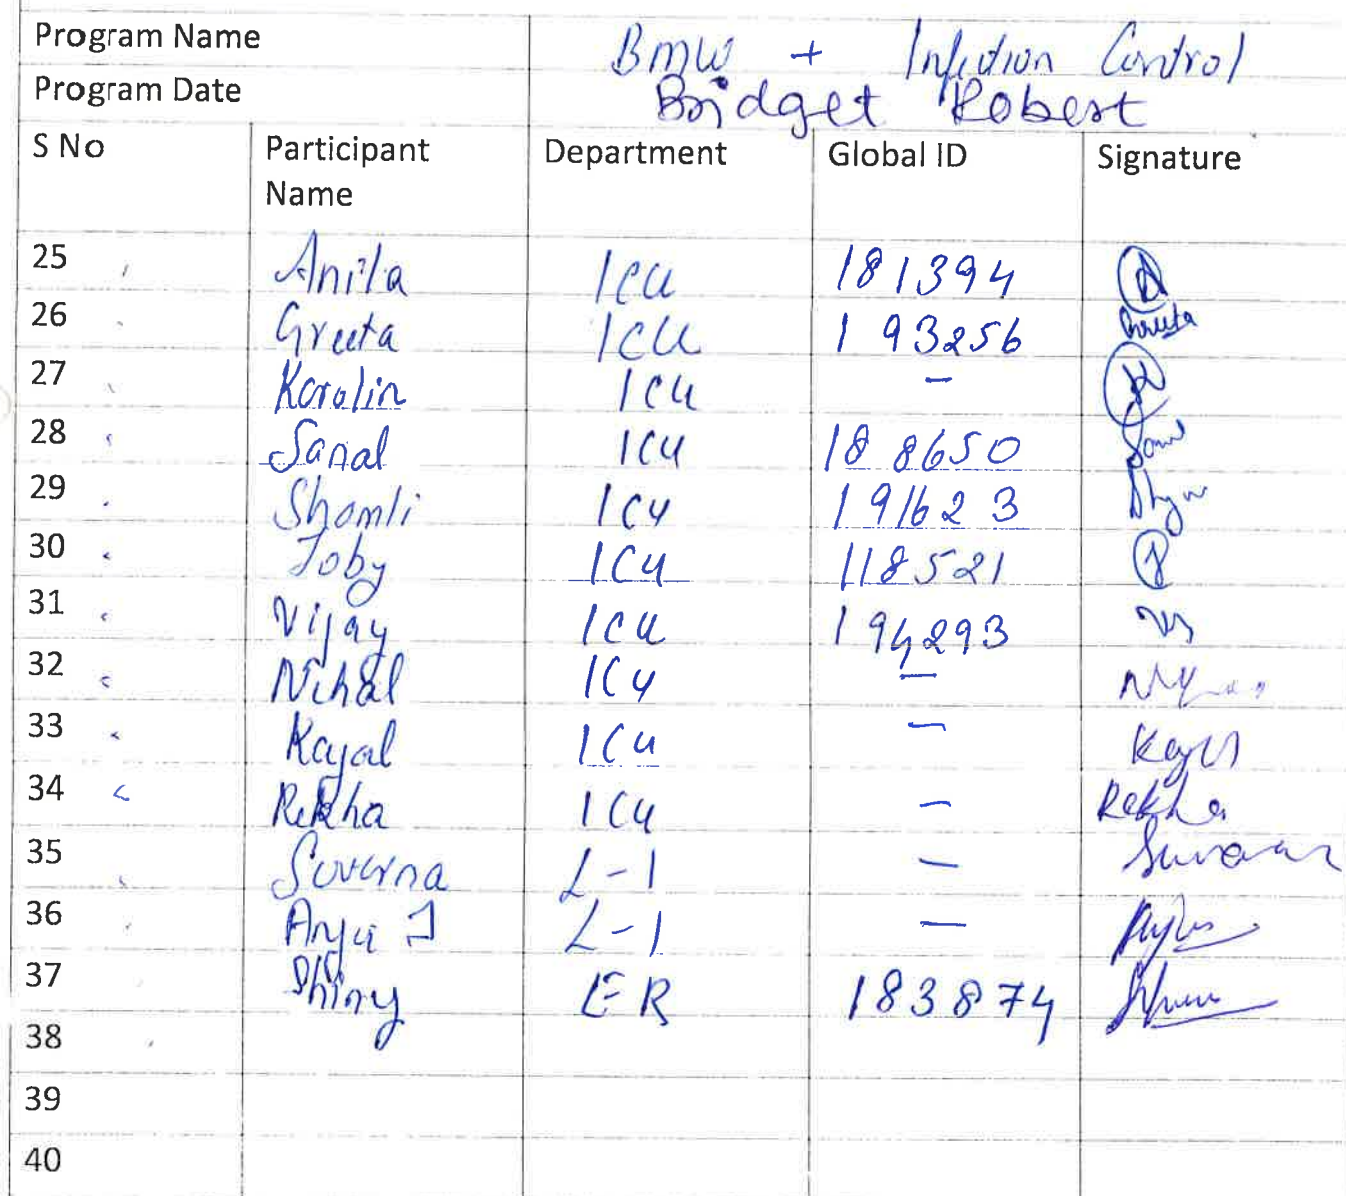 Program Name BMW + Infection Control
Program Date Bridget Robert
S No Participant Name Department Global ID Signature
25 Anila ICU 181394 A
26 Greeta ICU 193256 Greeta
27 Karolin ICU - K
28 Sanal ICU 188650
29 Shomli ICU 191623
30 Joby ICU 118521 J
31 Vijay ICU 194293
32 Nihal ICU -
33 Kajal ICU - Kajal
34 Rekha ICU - Rekha
35 Suverna L-1 -
36 Anju J L-1 -
37 Shiny ER 183874
38
39
40